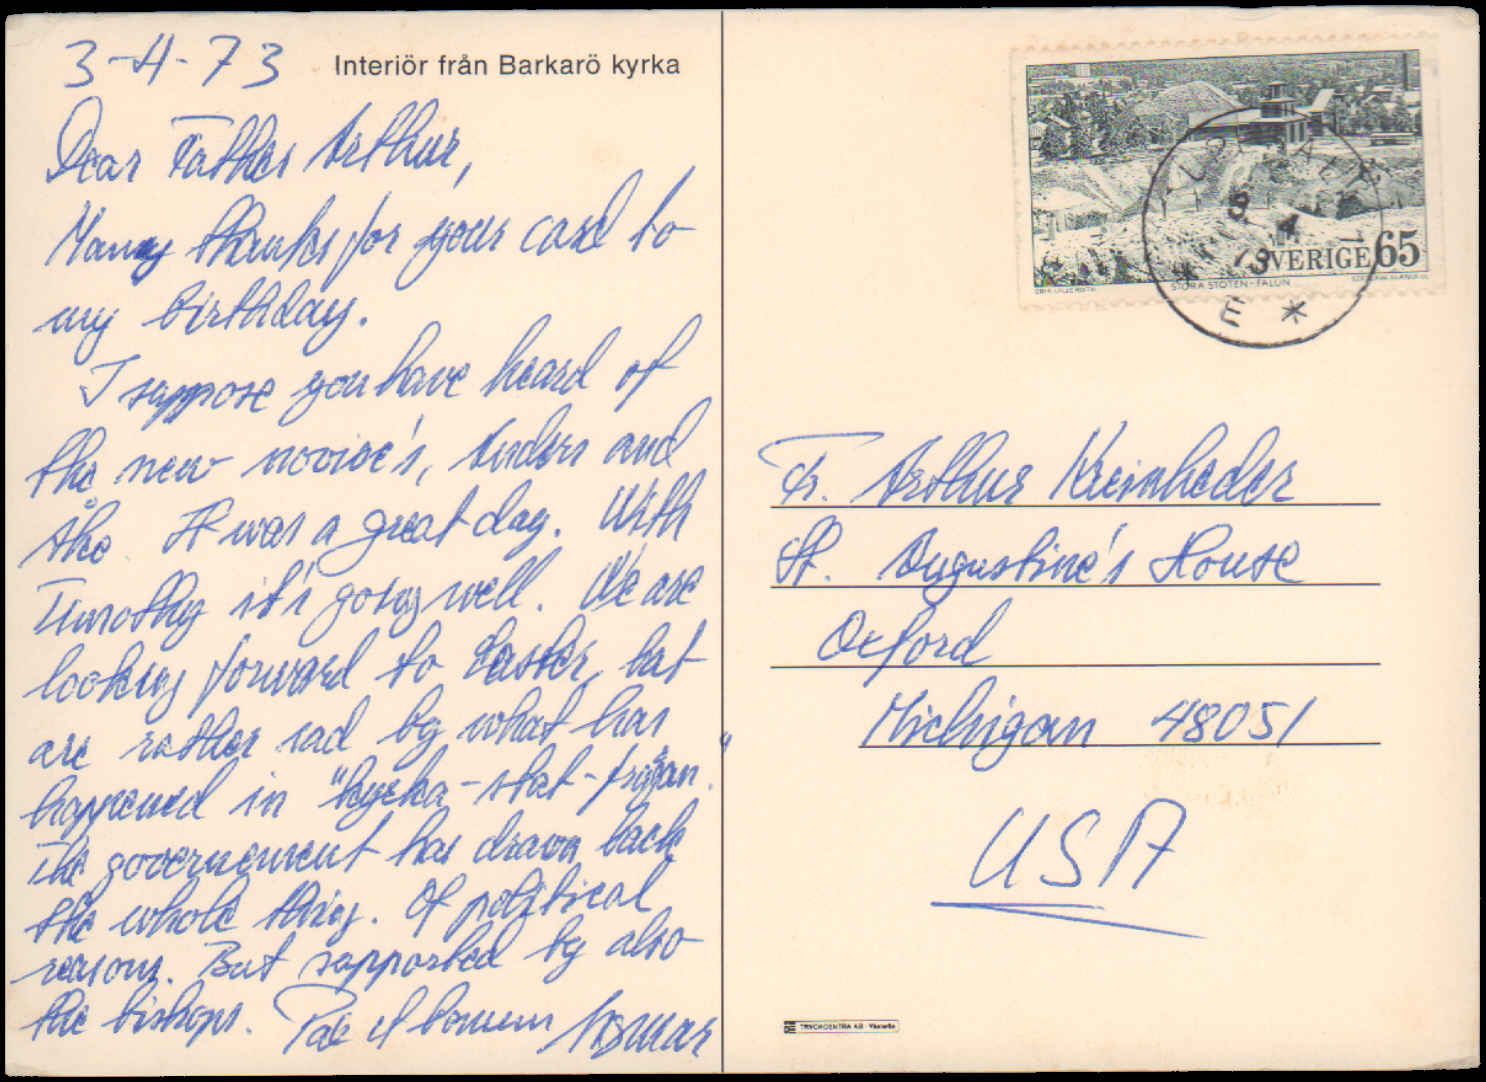 3-4-73
Interiör från Barkarö kyrka
Dear Father Arthur,
Many thanks for your card to
my birthday.
I suppose you have heard of
the new novice's, Anders and
Åke It was a great day. With
Timothy it's going well. We are
looking forward to Easter, but
are rather sad by what has
happened in "kyrka-stat-frågan."
The governement has drawn back
the whole thing. Of political
reasons. But supported by also
the bishops. Pax et bonum
SVERIGE 65
STORA STÖTEN-FALUN
9 4
73
E *
Fr. Arthur Kreinheder
St. Augustine's House
Oxford
Michigan 48051
USA
TRYCKCENTRA AB Västerås